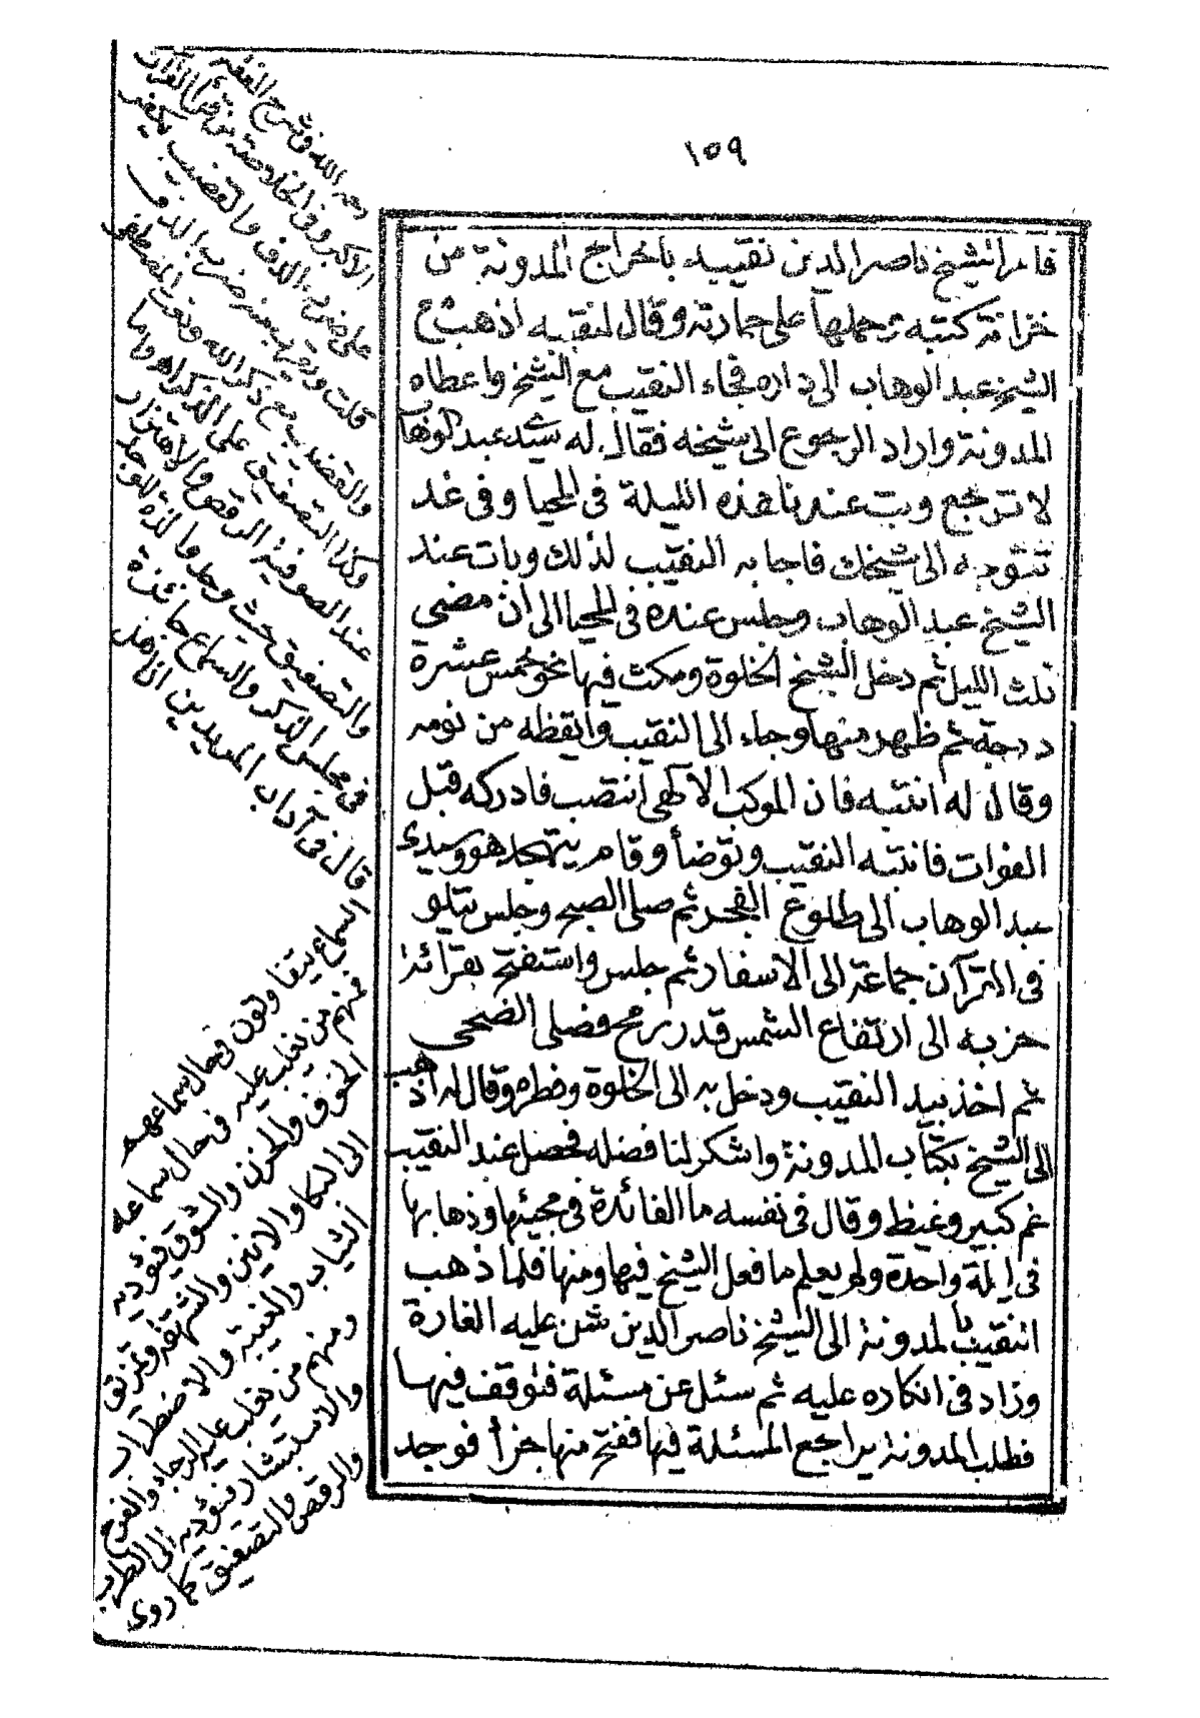 ١٥٩
فامر الشيخ ناصر الدين نقيبه باخراج المدونة من
خزانة كتبه وحملها على حمارته وقال لنقيبه اذهب مع
الشيخ عبد الوهاب الى داره فجاء النقيب مع الشيخ واعطاه
المدونة واراد الرجوع الى شيخه فقال له سيدى عبد الوهاب
لا ترجع وبت عندنا هذه الليلة فى المحيا وفى غد
تتوجه الى شيخك فاجابه النقيب لذلك وبات عند
الشيخ عبد الوهاب وجلس عنده فى المحيا الى ان مضى
ثلث الليل ثم دخل الشيخ الخلوة ومكث فيها نحو خمس عشرة
درجة ثم ظهر منها وجاء الى النقيب وايقظه من نومه
وقال له انتبه فان الموكب الآلهى انتصب فادركه قبل
الفوات فانتبه النقيب وتوضأ وقام يتهجد هو وسيدى
عبد الوهاب الى طلوع الفجر ثم صلى الصبح وجلس يتلو
فى القرآن جماعة الى الاسفار ثم جلس واستفتح بقرائة
حزبه الى ارتفاع الشمس قدر رمح فصلى الضحى
ثم اخذ بيد النقيب ودخل به الى الخلوة وفطره وقال له اذهب
الى الشيخ بكتاب المدونة واشكر لنا فضله فحصل عند النقيب
غم كبير وغيظ وقال فى نفسه ما الفائدة فى مجيئها وذهابها
فى ليلة واحدة ولم يعلم ما فعل الشيخ فيها ومنها فلما ذهب
النقيب بالمدونة الى الشيخ ناصر الدين شن عليه الغارة
وزاد فى انكاره عليه ثم سئل عن مسئلة فتوقف فيها
فطلب المدونة يراجع المسئلة فيها ففتح منها جزأ فوجد
رحمه الله فى شرح الفقه
الاكبر وفى الخلاصة من قرأ القرآن
على ضرب الدف والقضيب يكفر
قلت ويقرب منه ضرب الدف
والقضيب مع ذكر الله ونعت المصطفى
وكذا التصفيق على الذكر اه واما
عند الصوفية الرقص والاهتزاز
والتصفيق حيث وجد والذه للوجد
فى مجلس الذكر والسماع جائزة
قال فى آداب المريدين ان اهل
السماع يتفاوتون فى حال سماعهم
فمنهم من يغلب عليه فى حال سماعه
الخوف والحزن والشوق فيؤديه
الى البكا والانين والشهقة وتمزيق
الثياب والغيبة والاضطراب
ومنهم من يغلب عليه الرجاء والفرح
والاستبشار فيؤديه الى الطرب
والرقص والتصفيق كما روى